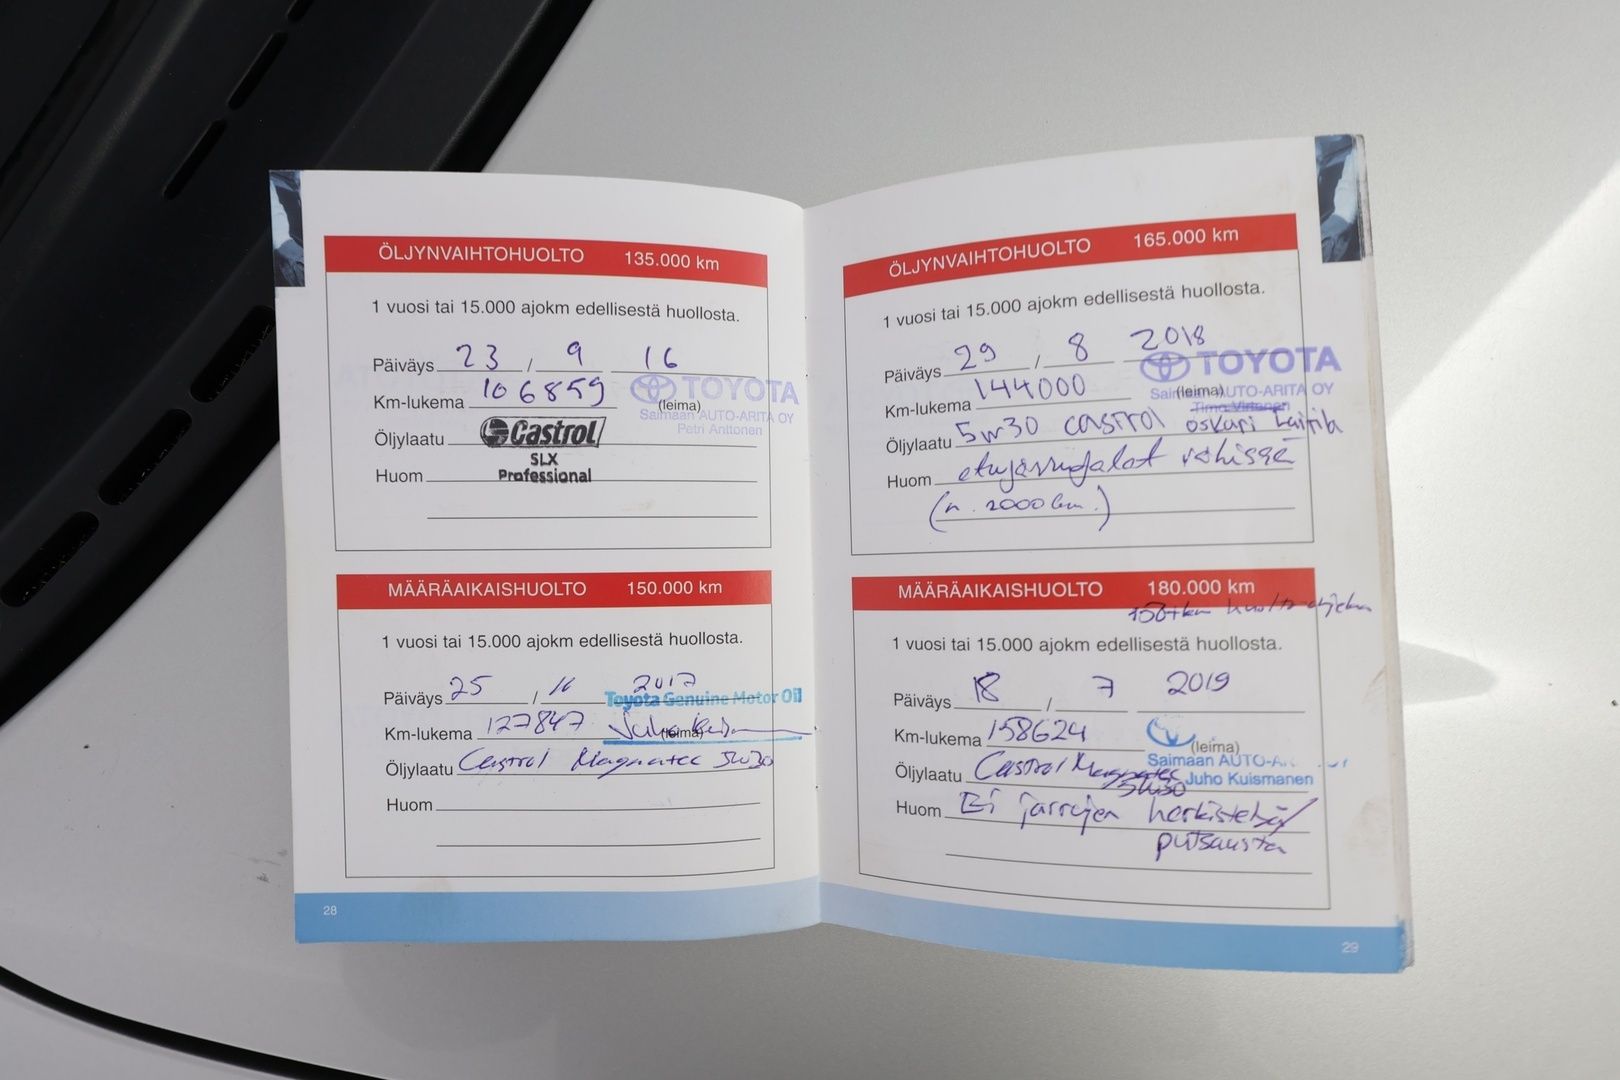 ÖLJYNVAIHTOHUOLTO 135.000 km
1 vuosi tai 15.000 ajokm edellisestä huollosta.
Päiväys 23 / 9 16
Km-lukema 106859 (leima)
TOYOTA
Saimaan AUTO-ARITA OY
Petri Anttonen
Öljylaatu Castrol
SLX
Professional
Huom
MÄÄRÄAIKAISHUOLTO 150.000 km
1 vuosi tai 15.000 ajokm edellisestä huollosta.
Päiväys 25 / 11 2017
Toyota Genuine Motor Oil
Km-lukema 127847 (leima)
Öljylaatu Castrol Magnatec 5W30
Huom
28
ÖLJYNVAIHTOHUOLTO 165.000 km
1 vuosi tai 15.000 ajokm edellisestä huollosta.
Päiväys 29 / 8 2018
TOYOTA
Km-lukema 144000 (leima)
Saimaan AUTO-ARITA OY
Timo Virtanen
Öljylaatu 5w30 castrol oskari
Huom etujarrupalat vähissä
(n. 2000 km.)
MÄÄRÄAIKAISHUOLTO 180.000 km
1 vuosi tai 15.000 ajokm edellisestä huollosta.
Päiväys 18 / 7 2019
Km-lukema 158624 (leima)
Saimaan AUTO-A
Juho Kuismanen
Öljylaatu Castrol Magnatec
5W30
Huom Ei jarrujen herkistelyä/
putsausta
29